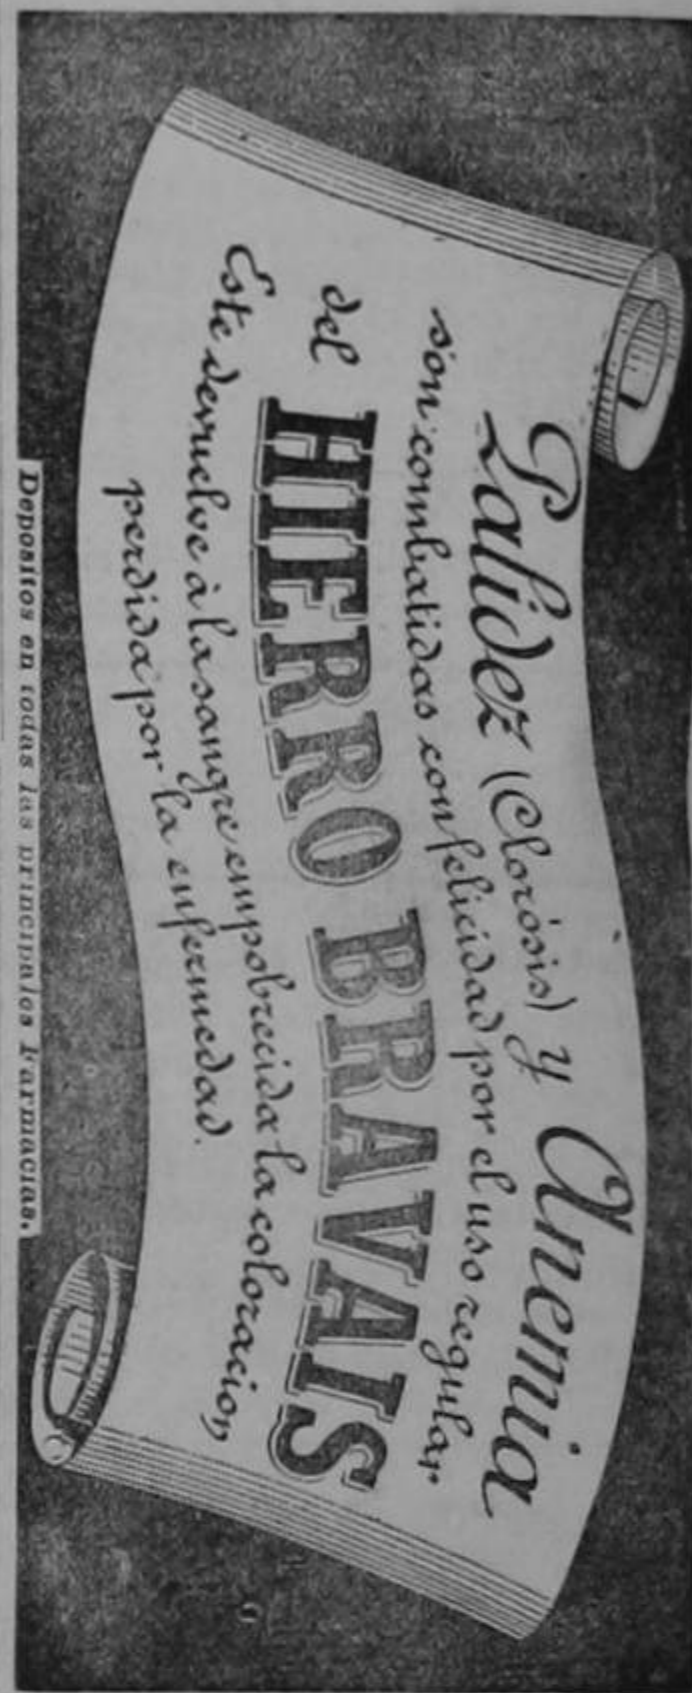 Palidez (Clorósis) y Anemia
son combatidas con felicidad por el uso regular
del HIERRO BRAVAIS
Este devuelve à la sangre empobrecida la coloracion,
perdida por la enfermedad.
Depositos en todas las principales Farmacias.